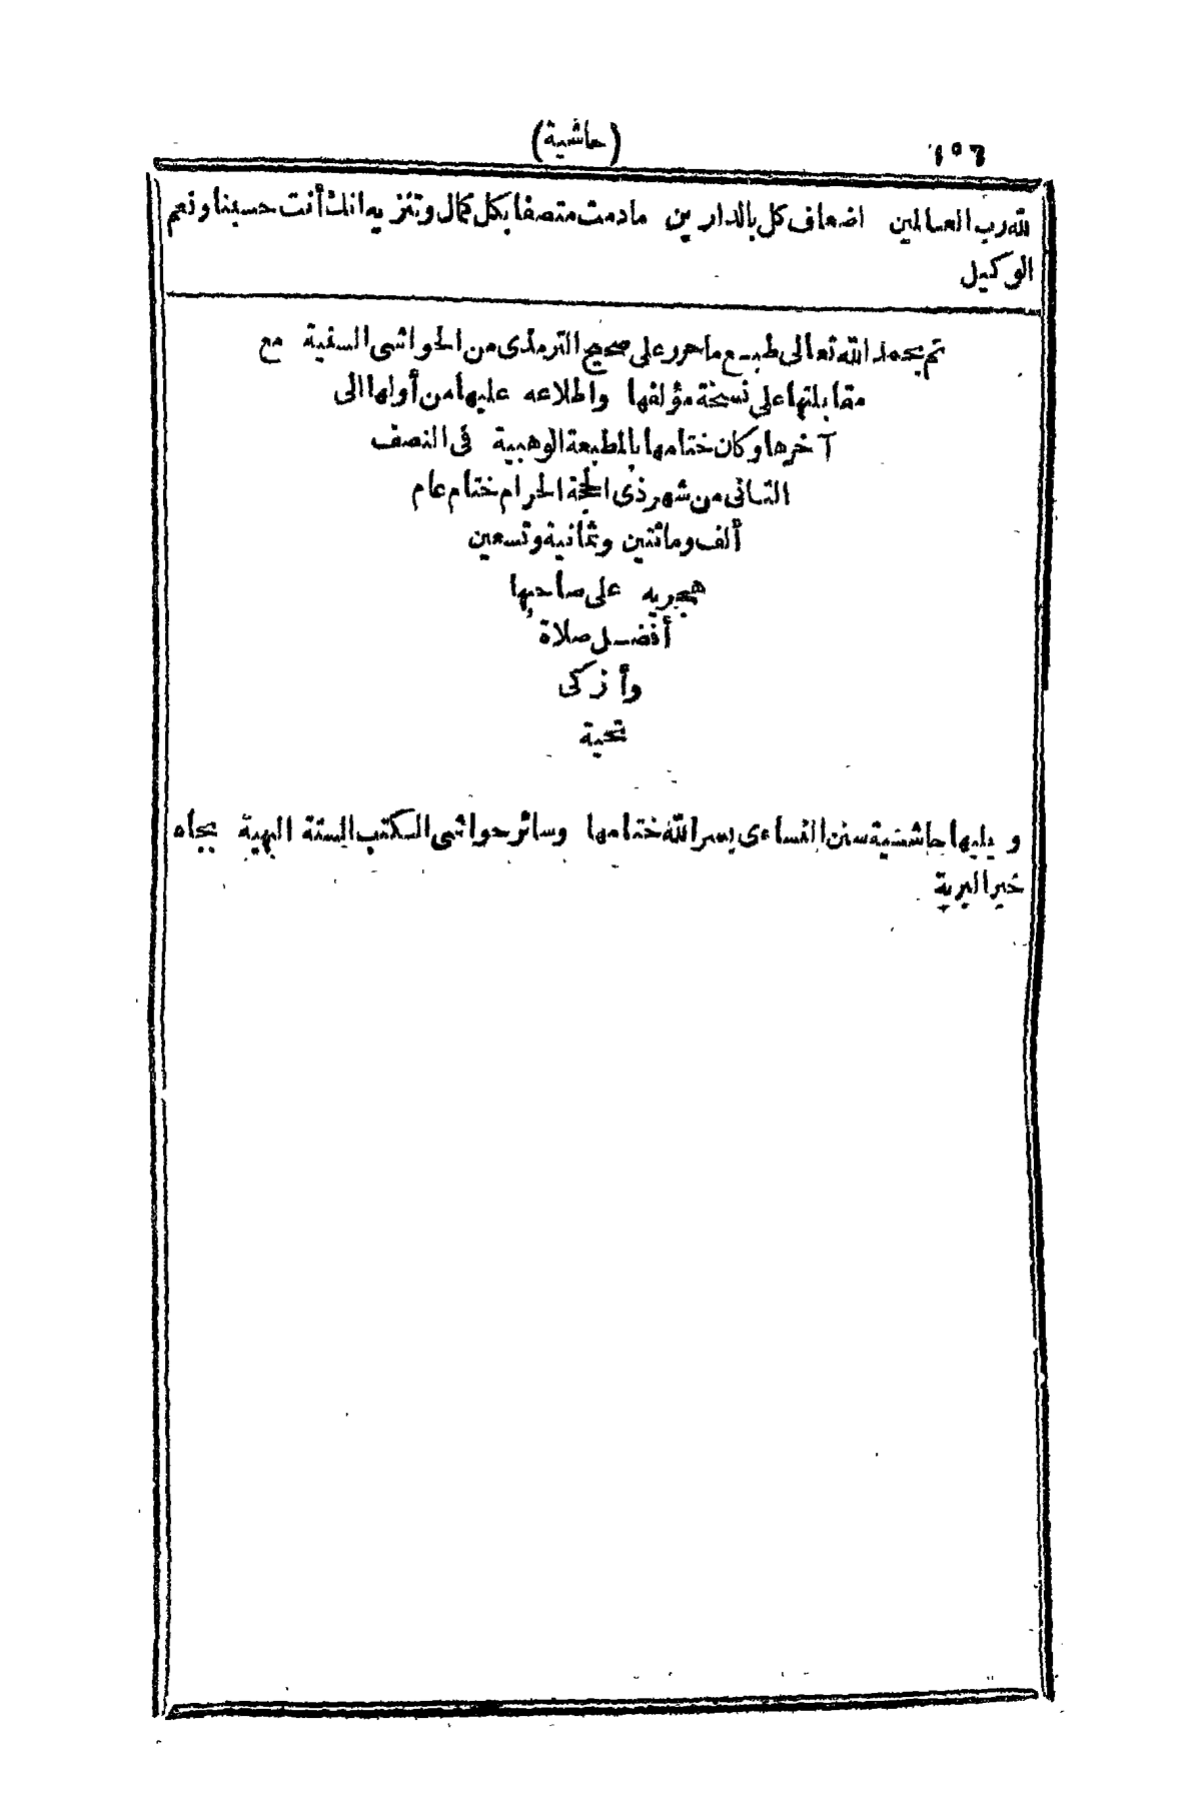 (حاشية)
١٥٦
لله رب العالمين اضعاف كل بالدارين مادمت متصفا بكل كمال وتنزيه انك أنت حسبنا ونعم
الوكيل
تم بحمد الله تعالى طبع ما حرر على صحيح الترمذى من الحواشى السفية مع
مقابلتها على نسخة مؤلفها واطلاعه عليها من أولها الى
آخرها وكان ختامها بالمطبعة الوهبية فى النصف
الثانى من شهر ذى الحجة الحرام ختام عام
ألف ومائتين وثمانية وتسعين
هجريه على صاحبها
أفضل صلاة
وأزكى
تحية
ويليها حاشية سنن النساءى يسر الله ختامها وسائر حواشى الكتب الستة البهية بجاه
خير البرية